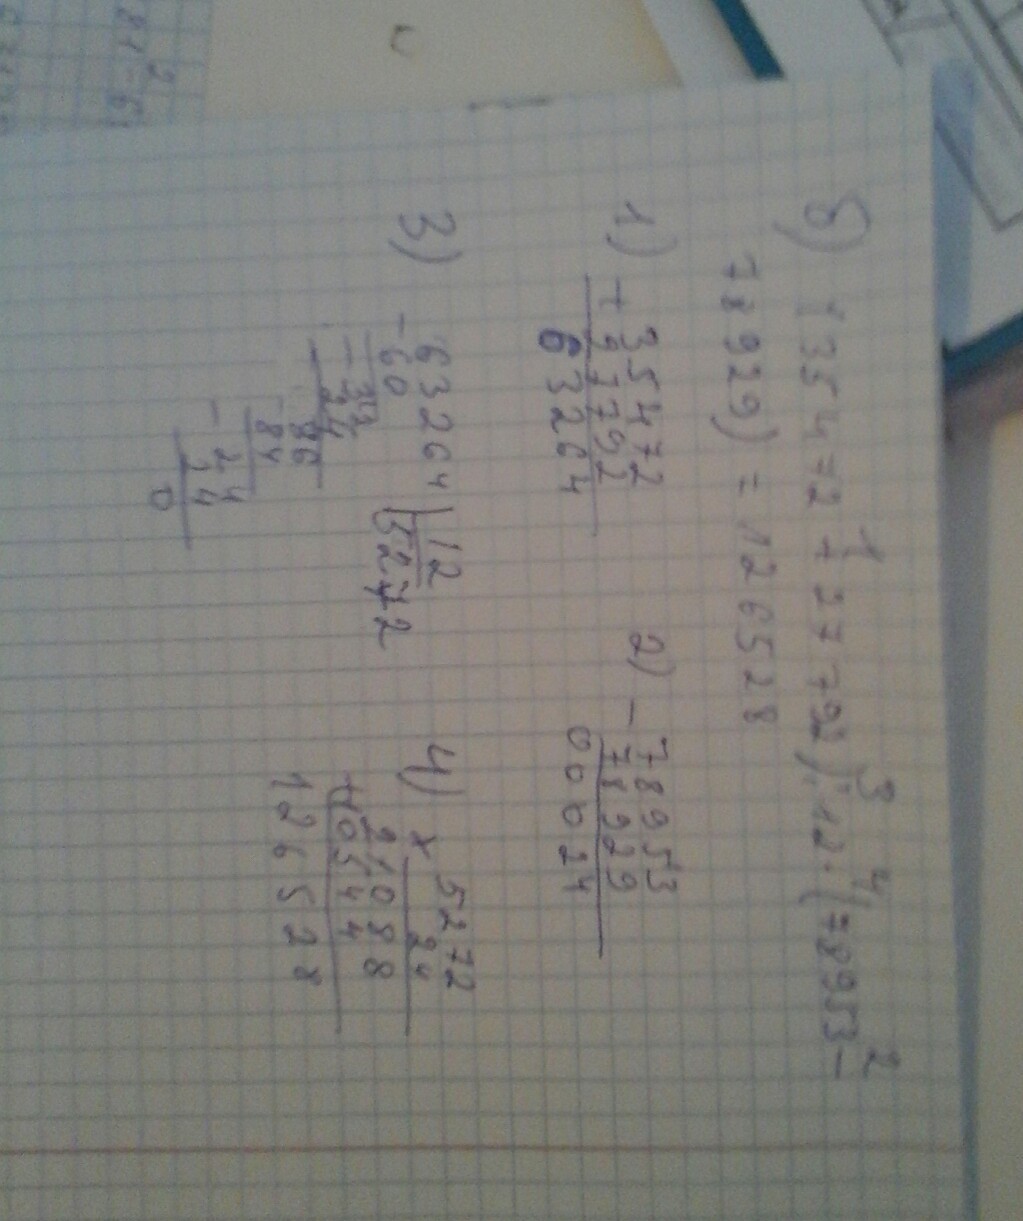 1 3 4 2
б) (35472 + 27792) : 12 · (78953 –
78929) = 126528
1) 35472
+ 27792
63264
2) – 78953
78929
00024
3) – 63264 | 12
60 5272
– 32
24
– 86
84
– 24
24
0
4) × 5272
24
21088
+ 10544
126528